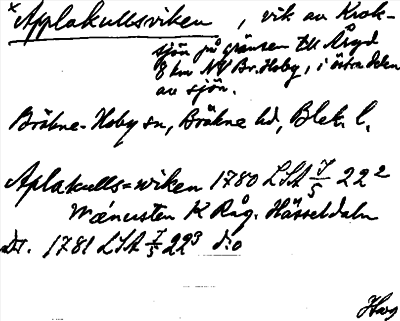 × Applakullsviken, vik av Krok-
sjön på gränsen till Åryd
8 km NV Br. Hoby, i östra delen
av sjön.
Bräkne-Hoby sn, Bräkne hd, Blek. l.
Aplakulls=wiken 1780 LSA 7/5 22²
Wænersten K Råg. Hässeldala
D:o. 1781 LSA 7/5 22³ d:o